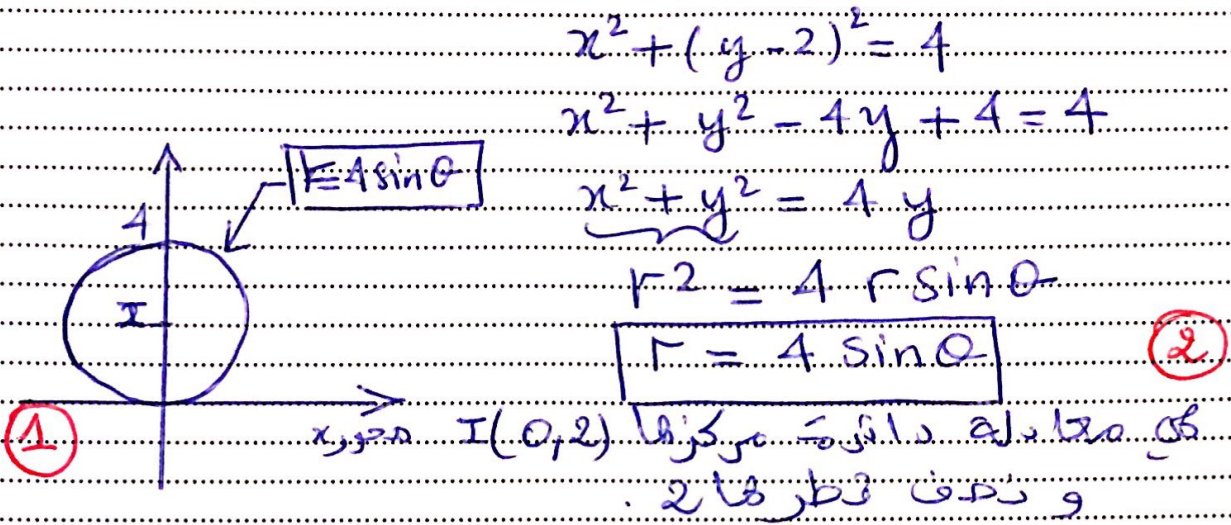 x² + (y - 2)² = 4
x² + y² - 4y + 4 = 4
x² + y² = 4 y
r² = 4 r sinθ
r = 4 sinθ
②
r = 4 sinθ
4
I
①
محور x
هي معادلة دائرة مركزها I(0,2)
و نصف قطرها 2 .